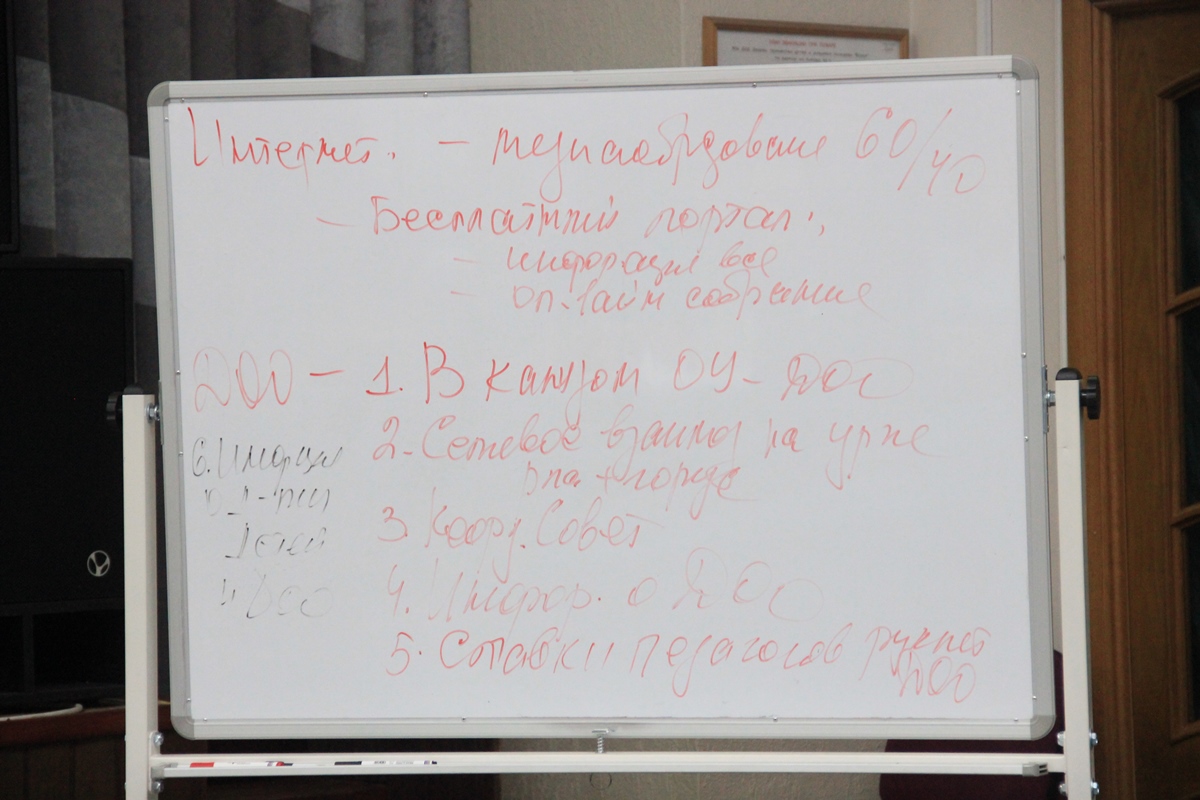 Интернет. – медиаобрдование 60/40
– Бесплатний портал:
– информация все
– он-лайн собрание
ДОО – 1. В каждом ОУ – ДОО
2. Сетевое взаимод на урне
р-на + городе
3. Коорд. Совет
4. Инфор. о ДОО
5. Ставки педагогов
ДОО
6. Информация
детей
ДОО